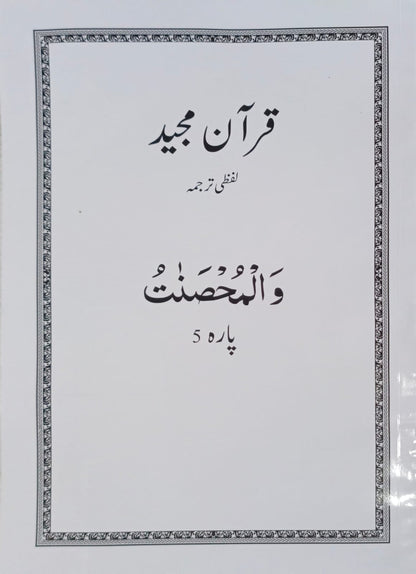 قرآن مجید
لفظی ترجمہ
وَالْمُحْصَنٰتُ
پارہ 5